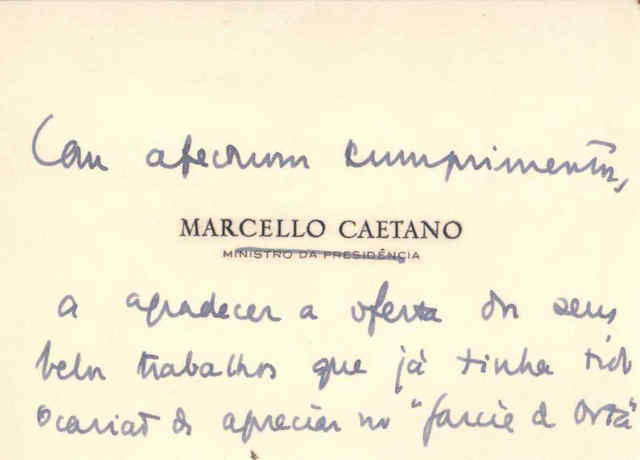 Com afectuosos cumprimentos,
MARCELLO CAETANO
MINISTRO DA PRESIDÊNCIA
a agradecer a oferta dos seus
belos trabalhos que já tinha tido
ocasião de apreciar na "Garcia de Orta"